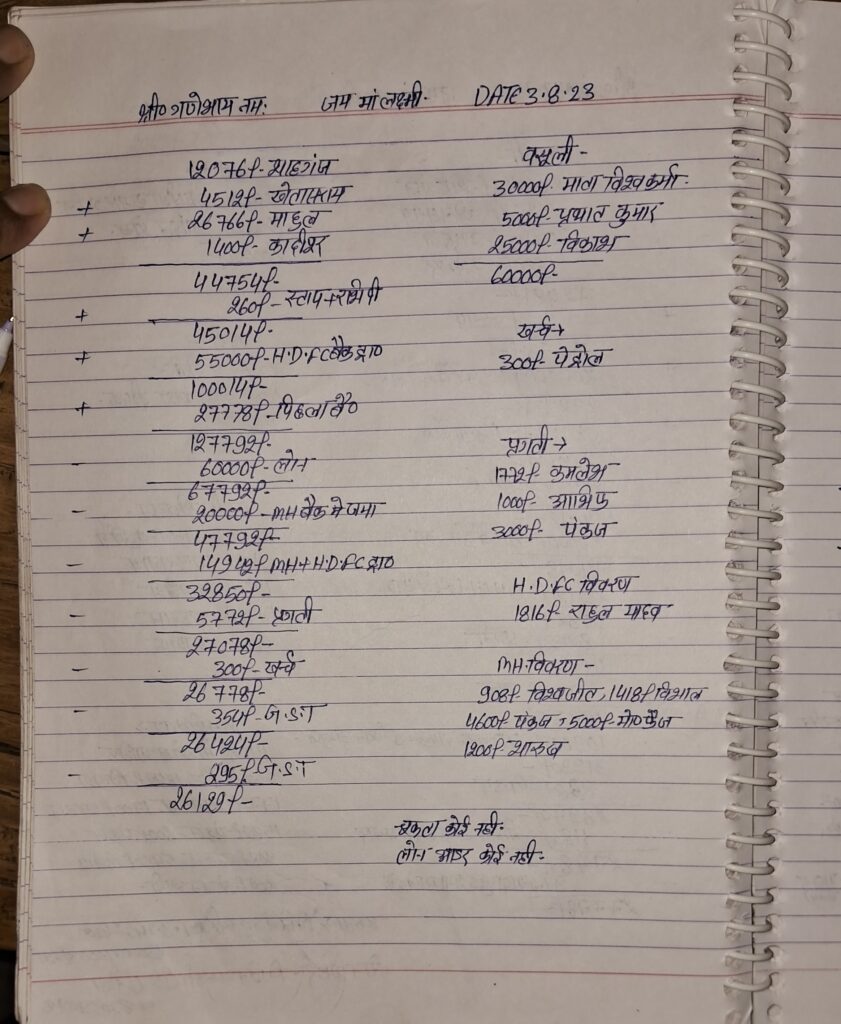 श्री० गणेशाय नम: जय मां लक्ष्मी. DATE 3.8.23
12076/- शाहगंज
+ 4512/- खेतासराय
+ 26766/- माहुल
1400/- कादीपुर
44754/-
+ 260/- स्टाप+
45014/-
+ 55000/- H.D.FC बैंक द्वा०
100014/-
+ 27778/- पिछला बै०
127792/-
- 60000/- लोन
67792/-
- 20000/- MH बैंक मे जमा
47792/-
- 14942/- MH+H.D.FC द्वा०
32850/-
- 5772/-
27078/-
- 300/- खर्च
26778/-
- 354/- G.S.T
26424/-
- 295/- G.S.T
26129/-
वसूली -
30000/- माता विश्वकर्मा.
5000/- प्रभात कुमार
25000/- विकाश
60000/-
खर्च→
300/- पेट्रोल
1772/- कमलेश
1000/- आशिफ
3000/- पंकज
H.D.FC विवरण
1816/- राहुल यादव
MH विवरण -
908/- विश्वजीत, 1418/- विशाल
4600/- पंकज, 5000/- मो० कैफ
1200/- शारुख
कोई नही.
लोन कोई नही.